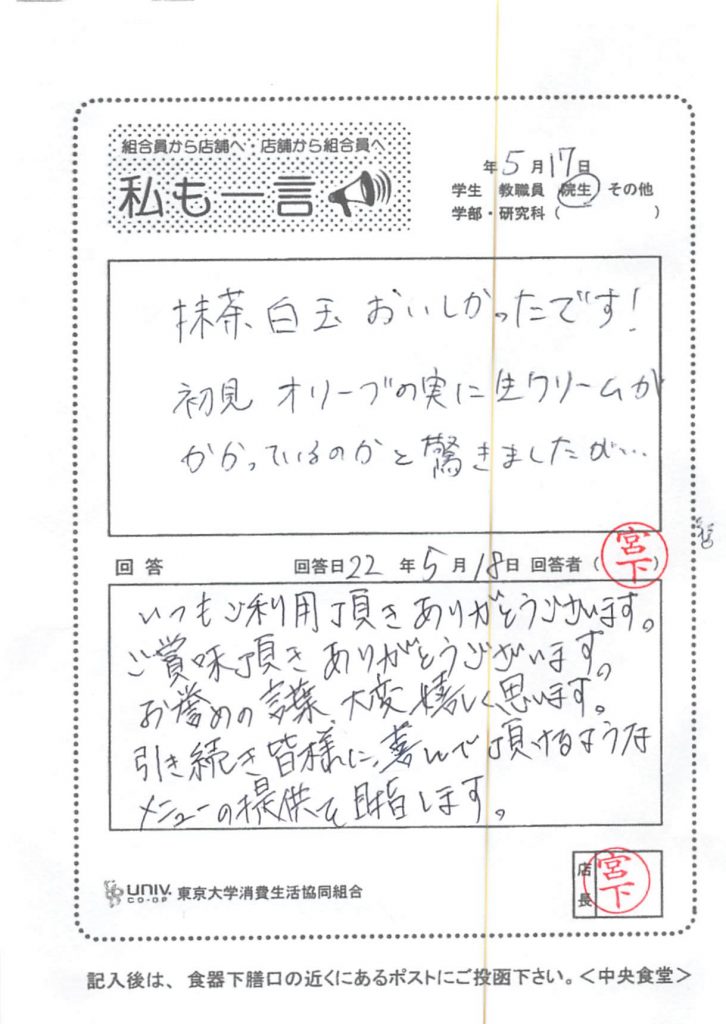 組合員から店舗へ・店舗から組合員へ
私も一言
年5月17日
学生 教職員 院生 その他
学部・研究科( )
抹茶白玉 おいしかったです!
初見 オリーブの実に生クリームが
かかっているのかと驚きましたが…
回答 回答日22年5月18日 回答者(宮下)
いつもご利用頂きありがとうございます。
ご賞味頂きありがとうございます。
お誉めの言葉、大変嬉しく思います。
引き続き皆様に、喜んで頂けるような
メニューの提供を目指します。
店長 宮下
UNIV. CO-OP 東京大学消費生活協同組合
記入後は、食器下膳口の近くにあるポストにご投函下さい。<中央食堂>